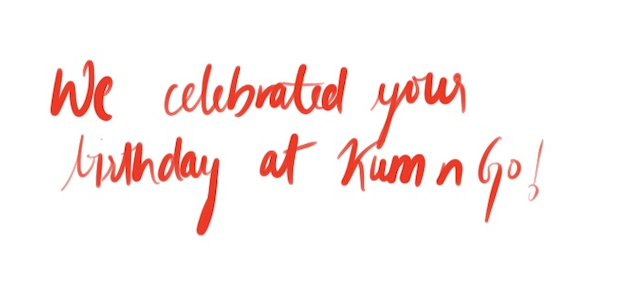 We celebrated your
birthday at Kum n Go!